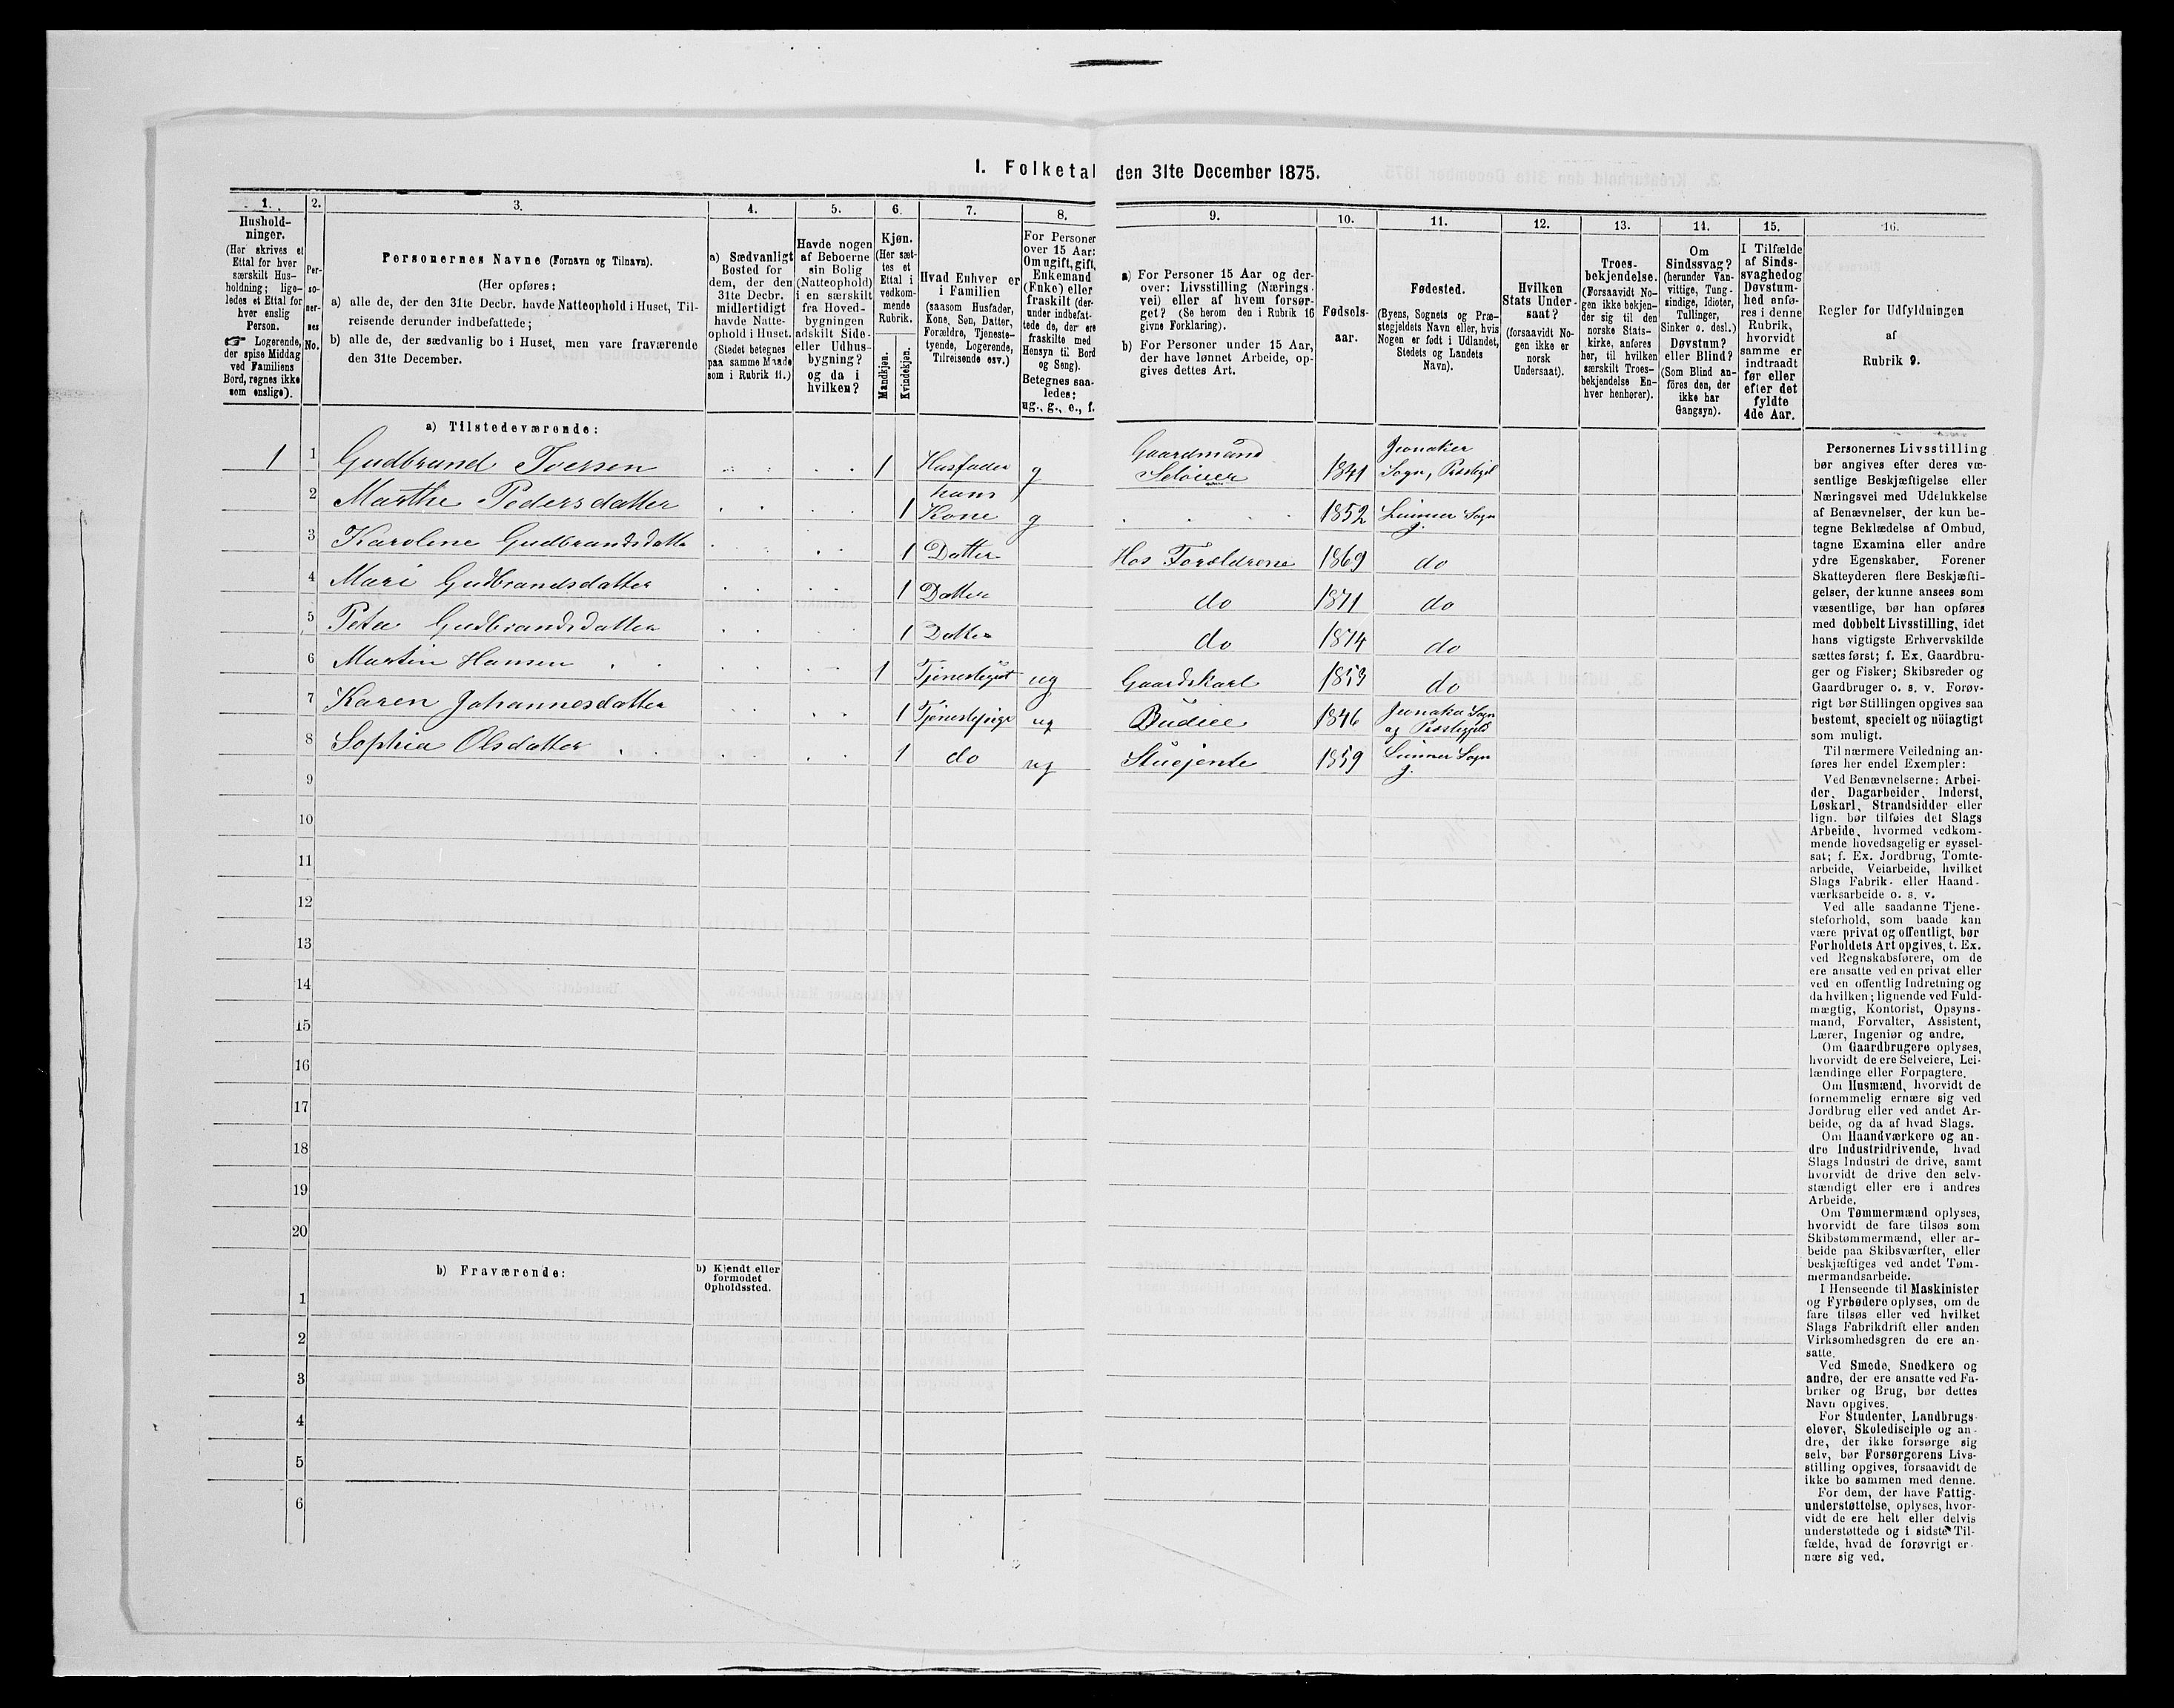 I. Folketal den 31te December 1875.
1. 2. 3. 4. 5. 6. 7. 8. 9. 10. 11. 12. 13. 14. 15. 16.
Hushold-
ninger.
(Her skrives et
Ettal for hver
særskilt Hus-
holdning; lige-
ledes et Ettal for
hver enslig
Person.
☞ Logerende,
der spise Middag
ved Familiens
Bord, regnes ikke
som enslige).
Per-
so-
ner-
nes
No.
Personernes Navne (Fornavn og Tilnavn).
(Her opføres:
a) alle de, der den 31te Decbr. havde Natteophold i Huset, Til-
reisende derunder indbefattede;
b) alle de, der sædvanlig bo i Huset, men vare fraværende
den 31te December.
a) Sædvanligt
Bosted for
dem, der den
31te Decbr.
midlertidigt
havde Natte-
ophold i Huset.
(Stedet betegnes
paa samme Maade
som i Rubrik 11.)
Havde nogen
af Beboerne
sin Bolig
(Natteophold)
i en særskilt
fra Hoved-
bygningen
adskilt Side-
eller Udhus-
bygning?
og da i
hvilken?
Kjøn.
(Her sæt-
tes et
Ettal i
vedkom-
mende
Rubrik.
Mandkjøn.
Kvindekjøn.
Hvad Enhver er
i Familien
(saasom Husfader,
Kone, Søn, Datter,
Forældre, Tjeneste-
tyende, Logerende,
Tilreisende osv.)
For Personer
over 15 Aar:
Om ugift, gift,
Enkemand
(Enke) eller
fraskilt (der-
under indbefat-
tede de, der ere
fraskilte med
Hensyn til Bord
og Seng).
Betegnes saa-
ledes:
ug., g., e., f.
a) For Personer 15 Aar og der-
over: Livsstilling (Nærings-
vei) eller af hvem forsør-
get? (Se herom den i Rubrik 16
givne Forklaring).
b) For Personer under 15 Aar,
der have lønnet Arbeide, op-
gives dettes Art.
Fødsels-
aar.
Fødested.
(Byens, Sognets og Præ-
stegjeldets Navn eller, hvis
Nogen er født i Udlandet,
Stedets og Landets
Navn).
Hvilken
Stats Under-
saat?
(forsaavidt No-
gen ikke er
norsk
Undersaat).
Troes-
bekjendelse.
(Forsaavidt No-
gen ikke bekjen-
der sig til den
norske Stats-
kirke, anføres
her, til hvilken
særskilt Troes-
bekjendelse En-
hver henhører).
Om
Sindssvag?
(herunder Van-
vittige, Tung-
sindige, Idioter,
Tullinger,
Sinker o. desl.)
Døvstum?
eller Blind?
(Som Blind an-
føres den, der
ikke har
Gangsyn).
I Tilfælde
af Sinds-
svaghed og
Døvstum-
hed anfø-
res i denne
Rubrik,
hvorvidt
samme er
indtraadt
før eller
efter det
fyldte
4de Aar.
Regler for Udfyldningen
af
Rubrik 9.
a) Tilstedeværende:
1 1 Gudbrand Iversen 1 Husfader g Gaardmand Seleier 1841 Jevnaker Sogn, Præstegjel
2 Marthe Pedersdatter 1 hans Kone g 1852 Lunner Sogn
3 Karoline Gudbrandsdatte 1 Datter Hos Forældrene 1869 do
4 Mari Gudbrandsdatter 1 Datter do 1871 do
5 Petra Gudbrandsdatter 1 Datter do 1874 do
6 Martin Hansen 1 Tjenestegut ug Gaardskarl 1853 do
7 Karen Johannesdatter 1 Tjenestepige ug Budeie 1846 Jevnaker Sogn og Præstegjeld
8 Sophia Olsdatter 1 do ug Stuejente 1859 Lunner Sogn
9
10
11
12
13
14
15
16
17
18
19
20
b) Fraværende:
b) Kjendt eller
formodet
Opholdssted.
1
2
3
4
5
6
Personernes Livsstilling
bør angives efter deres væ-
sentlige Beskjæftigelse eller
Næringsvei med Udelukkelse
af Benævnelser, der kun be-
tegne Beklædelse af Ombud,
tagne Examina eller andre
ydre Egenskaber. Forener
Skatteyderen flere Beskjæfti-
gelser, der kunne ansees som
væsentlige, bør han opføres
med dobbelt Livsstilling, idet
hans vigtigste Erhvervskilde
sættes først; f. Ex. Gaardbru-
ger og Fisker; Skibsreder og
Gaardbruger o. s. v. Forøv-
rigt bør Stillingen opgives saa
bestemt, specielt og nöiagtigt
som muligt.
Til nærmere Veiledning an-
føres her endel Exempler:
Ved Benævnelserne: Arbei-
der, Dagarbeider, Inderst,
Løskarl, Strandsidder eller
lign. bør tilføies det Slags
Arbeide, hvormed vedkom-
mende hovedsagelig er syssel-
sat; f. Ex. Jordbrug, Tomte-
arbeide, Veiarbeide, hvilket
Slags Fabrik- eller Haand-
værksarbeide o. s. v.
Ved alle saadanne Tjene-
steforhold, som baade kan
være privat og offentligt, bør
Forholdets Art opgives, t. Ex.
ved Regnskabsførere, om de
ere ansatte ved en privat eller
ved en offentlig Indretning og
da hvilken; lignende ved Fuld-
mægtig, Kontorist, Opsyns-
mand, Forvalter, Assistent,
Lærer, Ingeniør og andre.
Om Gaardbrugere oplyses,
hvorvidt de ere Selveiere, Lei-
lændinge eller Forpagtere.
Om Husmænd, hvorvidt de
fornemmelig ernære sig ved
Jordbrug eller ved andet Ar-
beide, og da af hvad Slags.
Om Haandværkere og an-
dre Industridrivende, hvad
Slags Industri de drive, samt
hvorvidt de drive den selv-
stændigt eller ere i andres
Arbeide.
Om Tømmermænd oplyses,
hvorvidt de fare tilsøs som
Skibstømmermænd, eller ar-
beide paa Skibsværfter, eller
beskjæftiges ved andet Tøm-
mermandsarbeide.
I Henseende til Maskinister
og Fyrbødere oplyses, om de
fare tilsøs eller ved hvilket
Slags Fabrikdrift eller anden
Virksomhedsgren de ere an-
satte.
Ved Smede, Snedkere og
andre, der ere ansatte ved Fa-
briker og Brug, bør dettes
Navn opgives.
For Studenter, Landbrugs-
elever, Skoledisciple og an-
dre, der ikke forsørge sig
selv, bør Forsørgerens Livs-
stilling opgives, forsaavidt de
ikke bo sammen med denne.
For dem, der have Fattig-
understøttelse, oplyses, hvor-
vidt de ere helt eller delvis
understøttede og i sidste Til-
fælde, hvad de forøvrigt er-
nære sig ved.